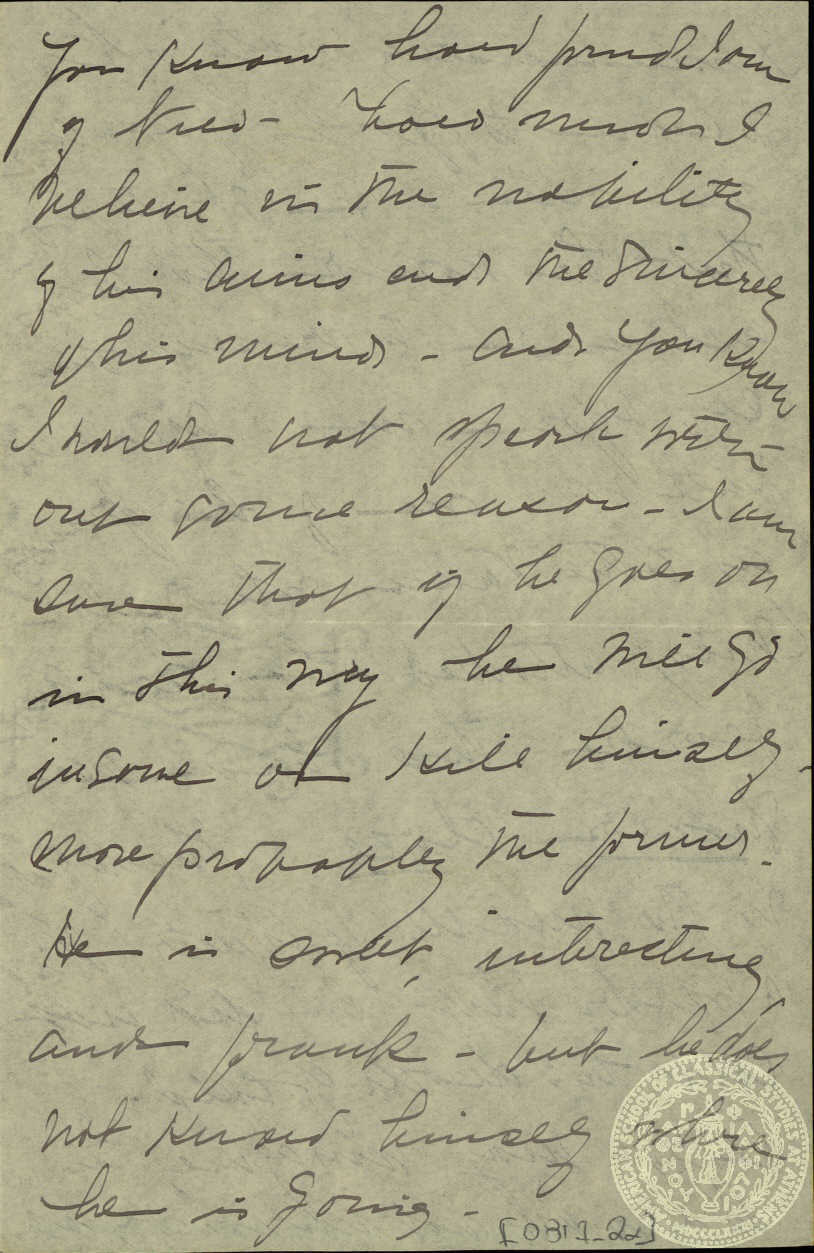 You know how fond I am
of                 - how much I
believe in the nobility
of his aims and the sincerety
of his mind - and you know
I would not speak with-
out some reason - I am
sure that if he goes on
in this way he will go
insane or kill himself -
more probably the former.
He is sweet, interesting,
and frank - but he does
not know himself where
he is going -
[0811-22]
AMERICAN SCHOOL OF CLASSICAL STUDIES AT ATHENS
MDCCCLXXXI